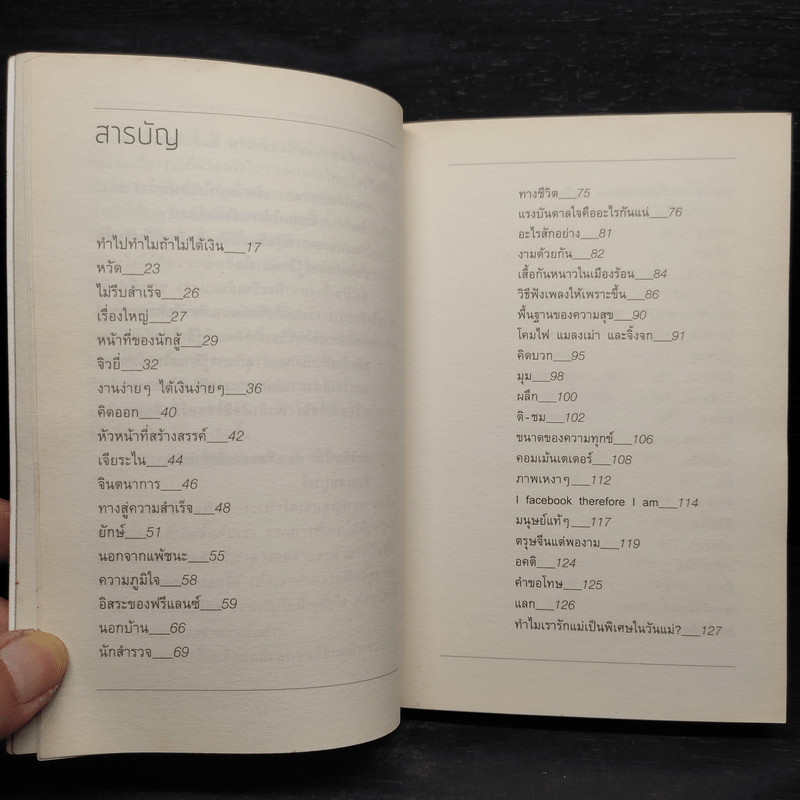 สารบัญ
ทำไปทำไมถ้าไม่ได้เงิน___17
หวัด___23
ไม่รีบสำเร็จ___26
เรื่องใหญ่___27
หน้าที่ของนักสู้___29
จิวยี่___32
งานง่ายๆ ได้เงินง่ายๆ___36
คิดออก___40
หัวหน้าที่สร้างสรรค์___42
เจียระไน___44
จินตนาการ___46
ทางสู่ความสำเร็จ___48
ยักษ์___51
นอกจากแพ้ชนะ___55
ความภูมิใจ___58
อิสระของฟรีแลนซ์___59
นอกบ้าน___66
นักสำรวจ___69
ทางชีวิต___75
แรงบันดาลใจคืออะไรกันแน่___76
อะไรสักอย่าง___81
งามด้วยกัน___82
เสื้อกันหนาวในเมืองร้อน___84
วิธีฟังเพลงให้เพราะขึ้น___86
พื้นฐานของความสุข___90
โคมไฟ แมลงเม่า และจิ้งจก___91
คิดบวก___95
มุม___98
ผลึก___100
ติ-ชม___102
ขนาดของความทุกข์___106
คอมเม้นเตเตอร์___108
ภาพเหงาๆ___112
I facebook therefore I am___114
มนุษย์แท้ๆ___117
ตรุษจีนแต่พองาม___119
อคติ___124
คำขอโทษ___125
แลก___126
ทำไมเรารักแม่เป็นพิเศษในวันแม่?___127